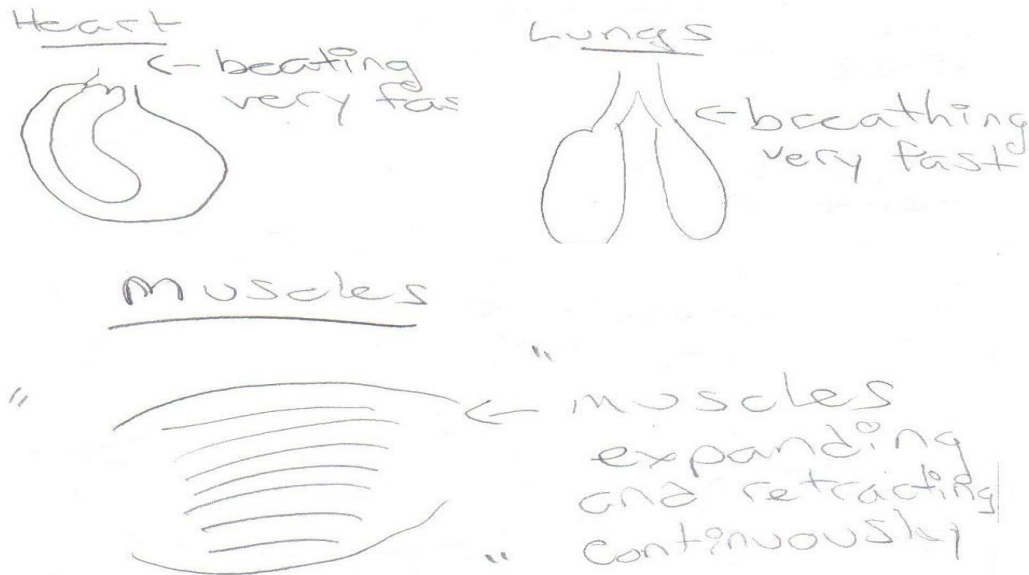 Heart
<- beating
very fas
Lungs
<- breathing
very fast
Muscles
"
"
<- muscles
expanding
and retracting
continuously
"